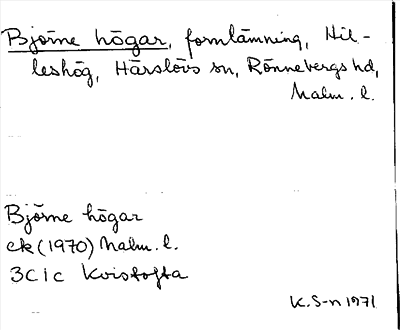 Björne högar, fornlämning, Hil-
leshög, Härslövs sn, Rönnebergs hd,
Malm. l.
Björne högar
ek (1970) Malm. l.
3C1c Kvistofta
K. S-n 1971